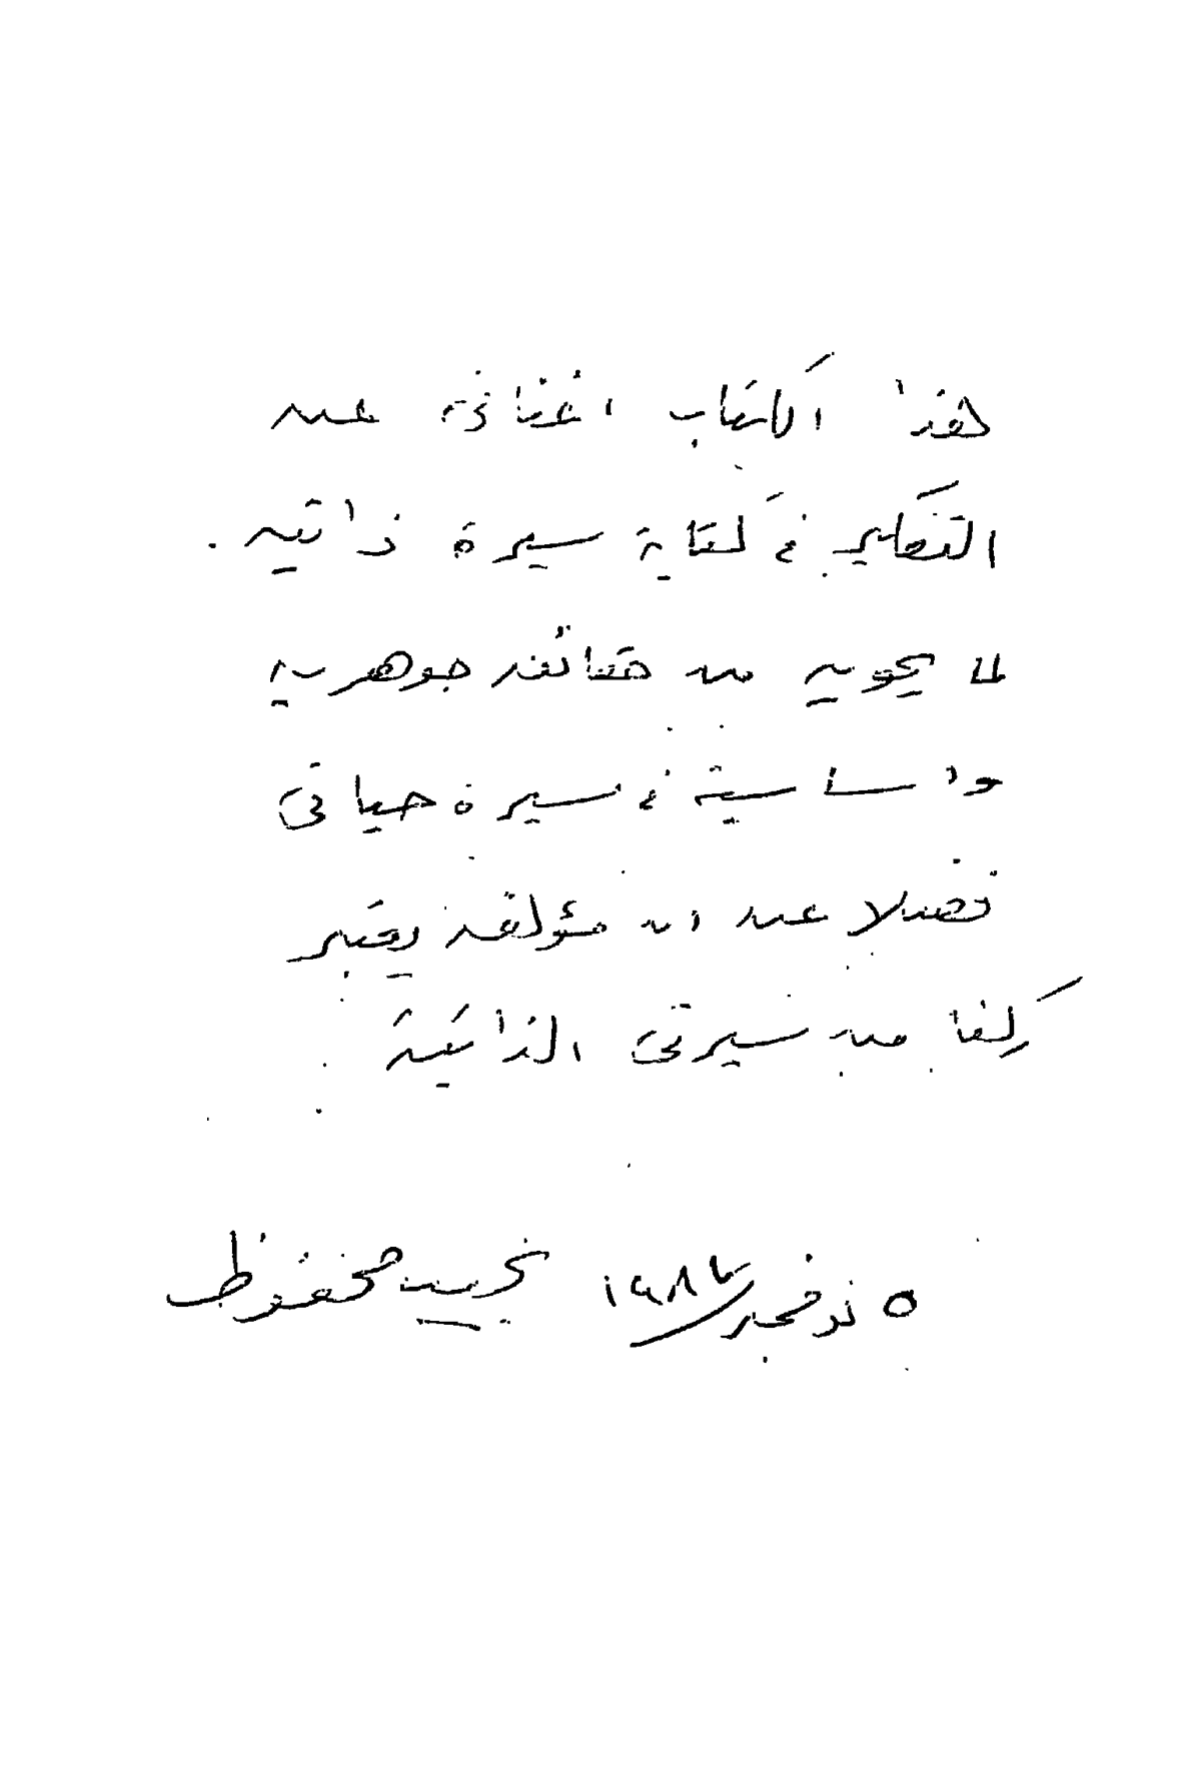 هذا الكتاب اغنانى عن
التفكير فى كتابة سيرة ذاتيه .
لما يحويه من حقائق جوهريه
واساسية فى سيرة حياتى
فضلا عن ان مؤلفه يعتبر
ركنا من سيرتى الذاتية
٥ نوفمبر ١٩٨٦ نجيب محفوظ